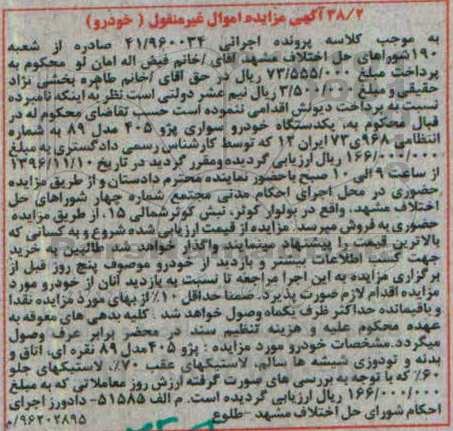 ۳۸/۲ آگهی مزایده اموال غیرمنقول ( خودرو )
به موجب کلاسه پرونده اجرائی ۴۱/۹۶۰۰۳۴ صادره از شعبه
۱۹۰شوراهای حل اختلاف مشهد آقای /خانم فیض اله امان لو محکوم به
پرداخت مبلغ ۷۳/۵۵۵/۰۰۰ ریال در حق آقای /خانم طاهره بخشی نژاد
حقیقی و مبلغ ۳/۵۰۰/۰۰۰ ریال نیم عشر دولتی است نظر به اینکه نامبرده
نسبت به پرداخت دیونش اقدامی ننموده است حسب تقاضای محکوم له در
قبال محکوم به، یکدستگاه خودرو سواری پژو ۴۰۵ مدل ۸۹ به شماره
انتظامی ۹۶۸ی۷۳ ایران ۱۲ که توسط کارشناس رسمی دادگستری به مبلغ
۱۶۶/۰۰۰/۰۰۰ ریال ارزیابی گردیده ومقرر گردید در تاریخ ۱۳۹۶/۱۱/۱۰
از ساعت ۹ الی ۱۰ صبح باحضور نماینده محترم دادستان و از طریق مزایده
حضوری در محل اجرای احکام مدنی مجتمع شماره چهار شوراهای حل
اختلاف مشهد، واقع در بولوار کوثر، نبش کوثرشمالی ۱۵، از طریق مزایده
حضوری به فروش میرسد. مزایده از قیمت ارزیابی شده شروع و به کسانی که
بالاترین قیمت را پیشنهاد مینمایند واگذار خواهد شد. طالبین به خرید
جهت کسب اطلاعات بیشتر و بازدید از خودرو موصوف پنج روز قبل از
برگزاری مزایده به این اجرا مراجعه تا نسبت به بازدید آنان از خودرو مورد
مزایده اقدام لازم صورت پذیرد. ضمنا حداقل ۱۰٪ از بهای مورد مزایده نقدا
و باقیمانده حداکثر ظرف یکماه وصول خواهد شد : کلیه بدهی های معوقه به
عهده محکوم علیه و هزینه تنظیم سند در محضر برابر عرف وصول
میگردد.مشخصات خودرو مورد مزایده : پژو ۴۰۵مدل ۸۹ نقره ای، اتاق و
بدنه و تودوزی شیشه ها سالم، لاستیکهای عقب ۷۰٪، لاستیکهای جلو
۶۰٪ که با توجه به بررسی های صورت گرفته ارزش روز معاملاتی که به مبلغ
۱۶۶/۰۰۰/۰۰۰ ریال ارزیابی گردیده است. م الف ۵۱۵۸۵- دادورز اجرای
احکام شورای حل اختلاف مشهد -طلوع
/۹۶۲۰۲۸۹۵